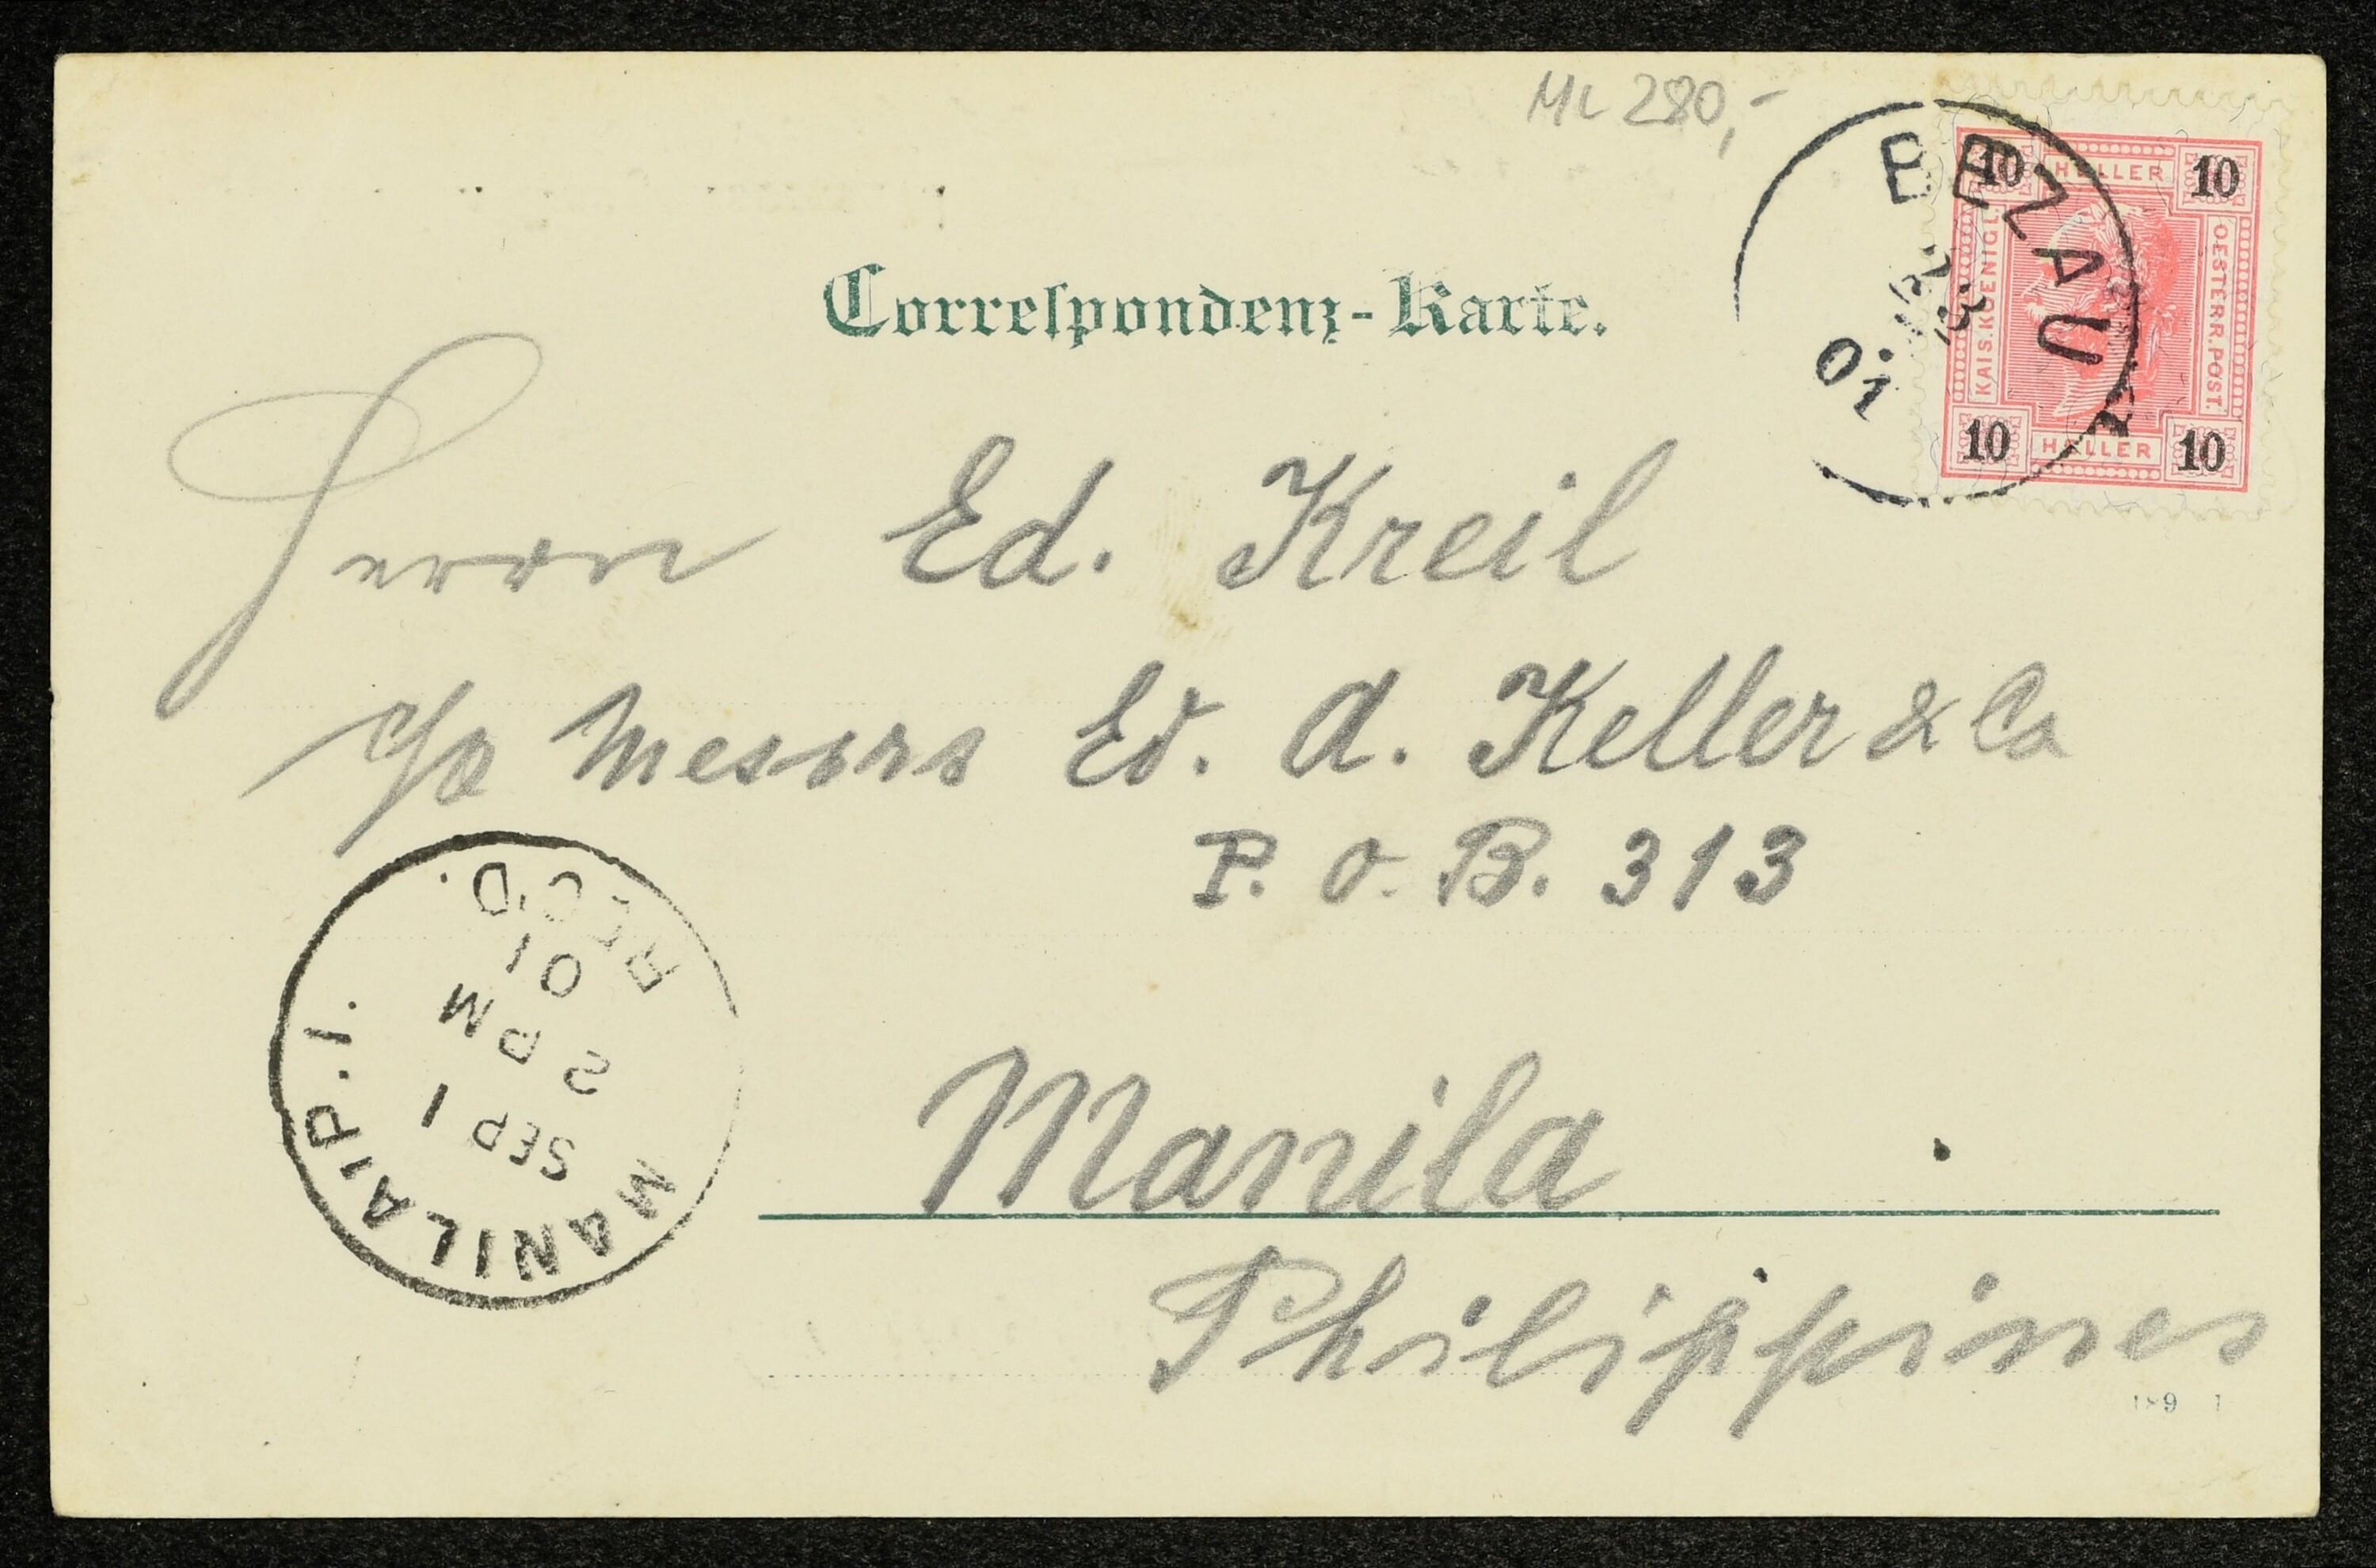 ML 280,-
Correspondenz-Karte.
BEZAU
23
01
10 HELLER 10
KAIS. KOENIGL.
OESTERR. POST.
10 HELLER 10
Herrn Ed. Kreil
c/o Messrs Ed. A. Keller & Co
P. O. B. 313
Manila
Philippines
MANILA P.I.
SEP 1
2 PM
01
REC'D.